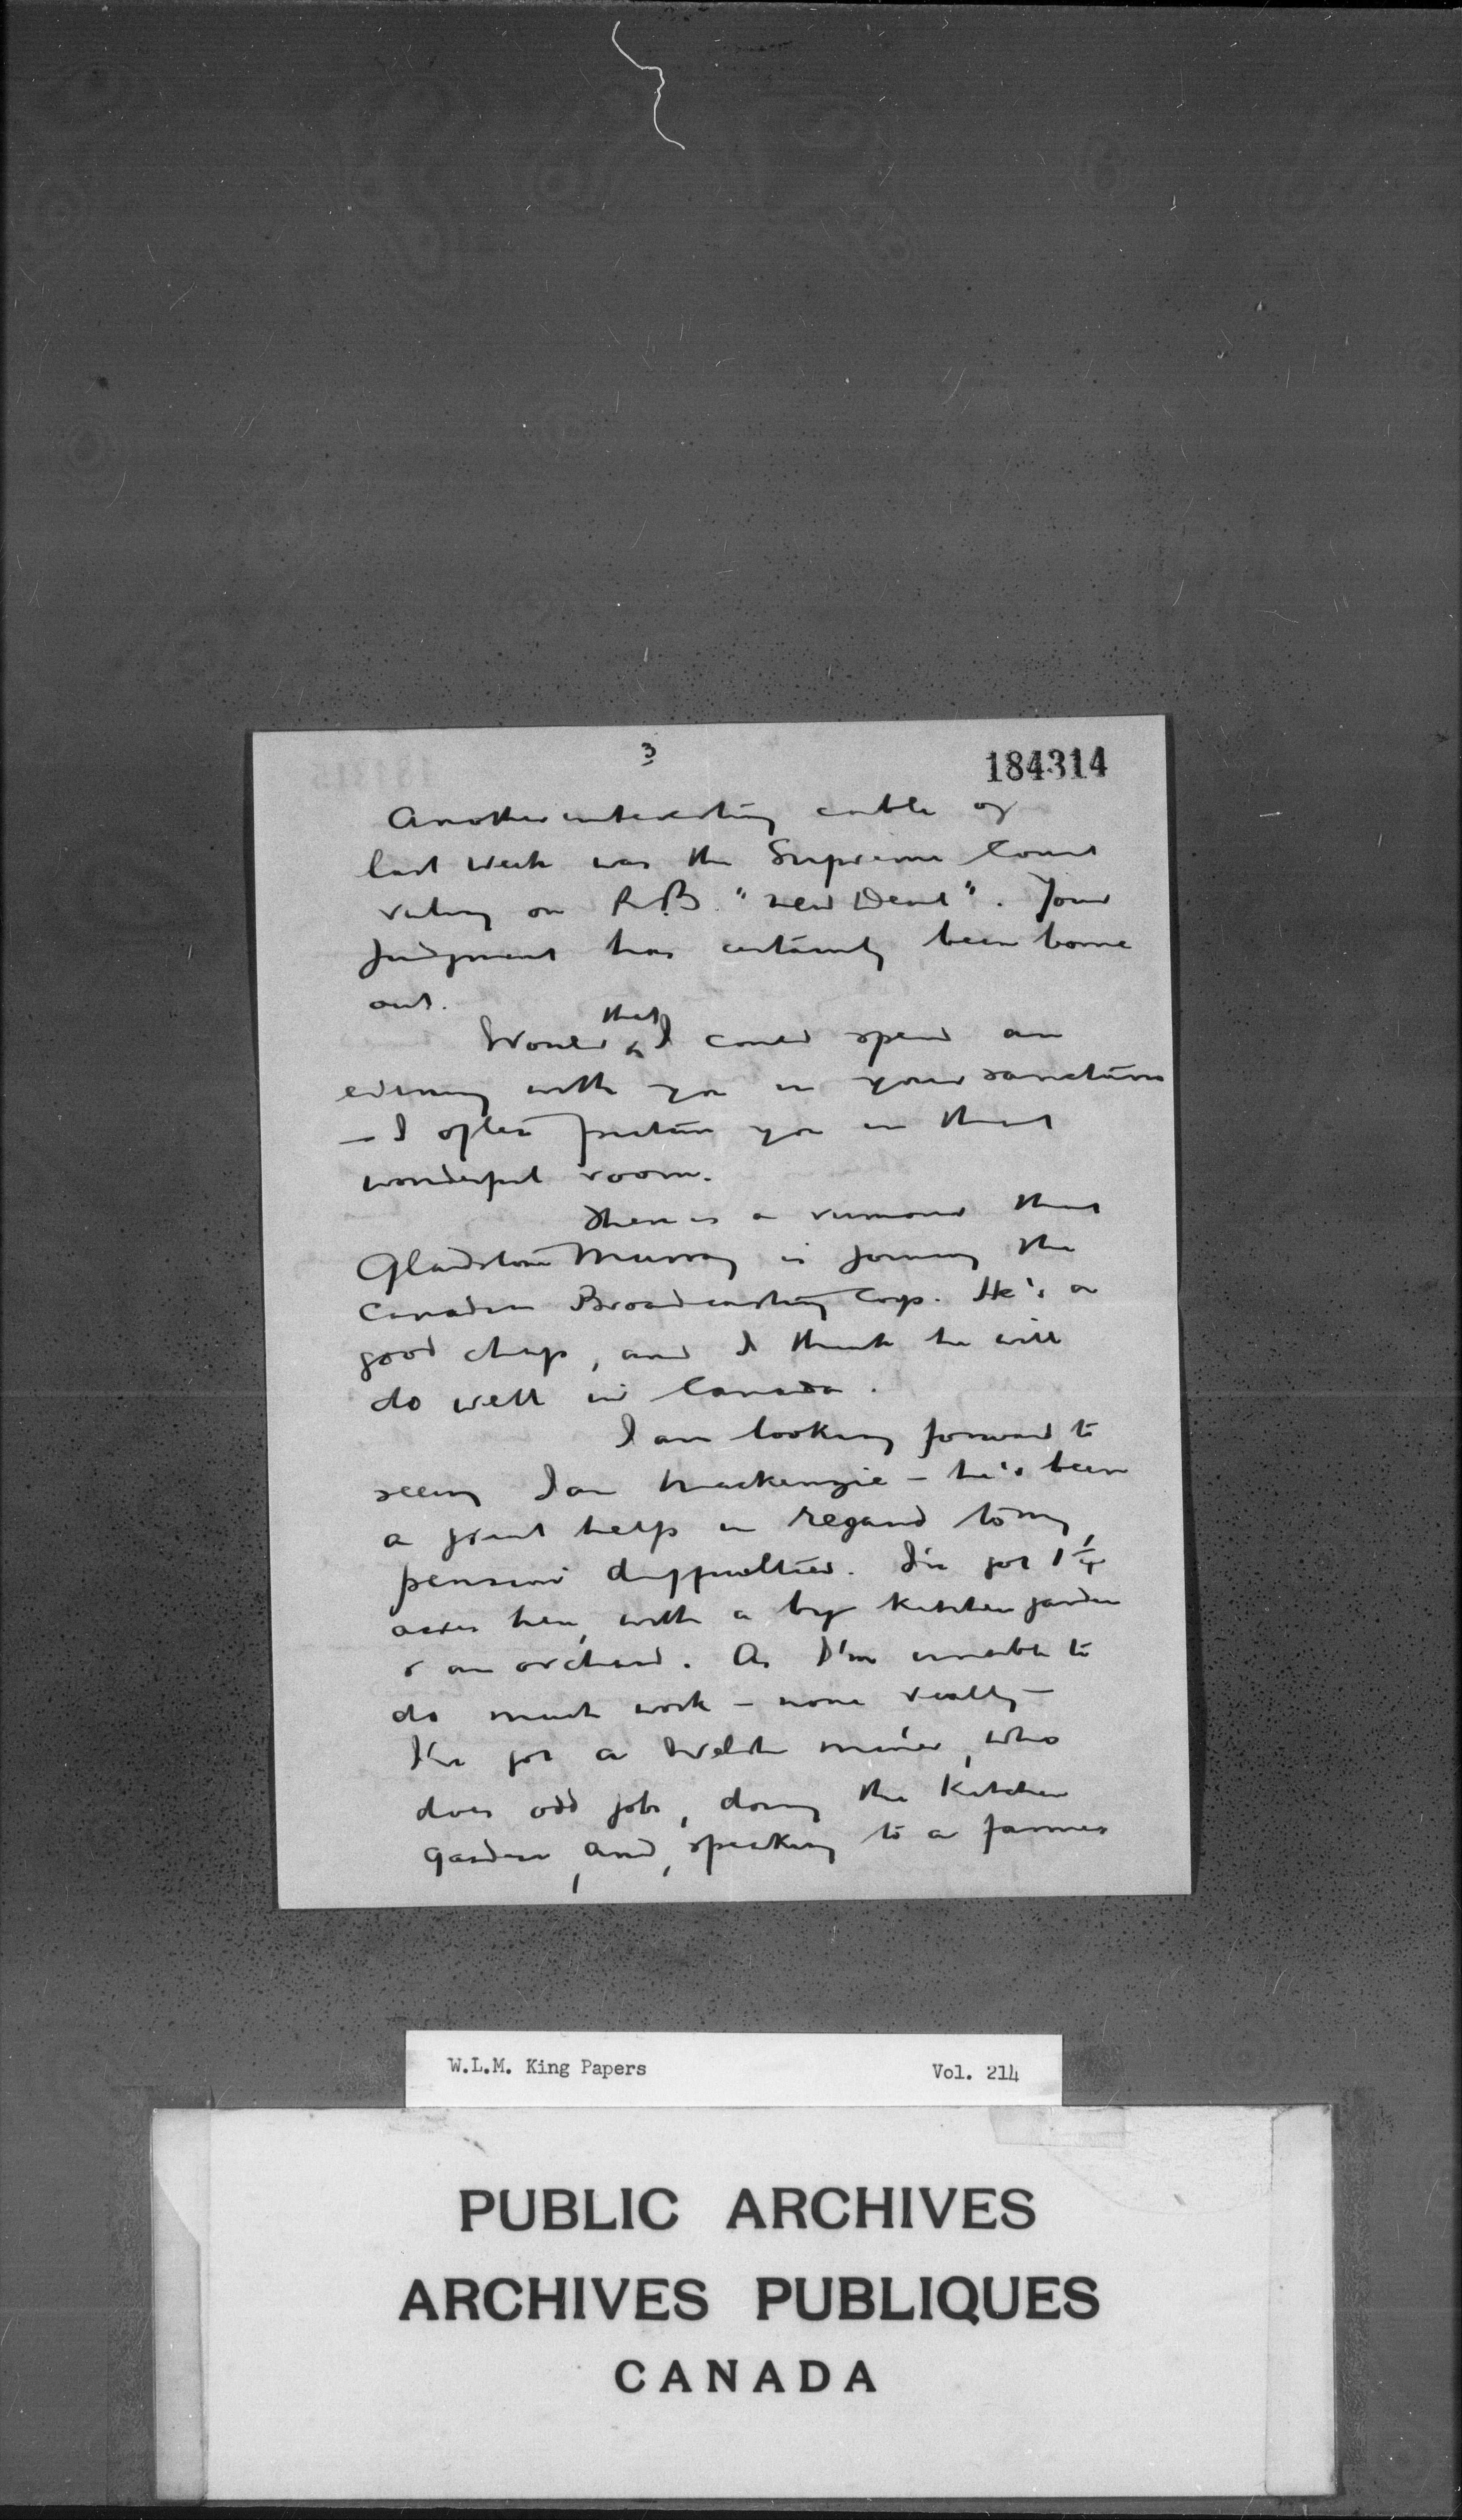 3
184314
Another interesting cable of
last week was the Supreme Court
ruling on R.B. "New Deal". Your
judgment has certainly been borne
out.
Would that I could spend an
evening with you in your sanctum
— I often picture you in that
wonderful room.
There is a rumour that
Gladstone Murray is joining the
Canadian Broadcasting Corp. He's a
good chap, and I think he will
do well in Canada.
I am looking forward to
seeing Ian Mackenzie — he's been
a great help in regard to my
pension difficulties. I've got 1 1/4
acres here, with a big kitchen garden
& an orchard. As I'm unable to
do much work — none really —
I've got a Welsh miner, who
does odd jobs, doing the kitchen
garden, and, speaking to a farmer
W.L.M. King Papers Vol. 214
PUBLIC ARCHIVES
ARCHIVES PUBLIQUES
CANADA